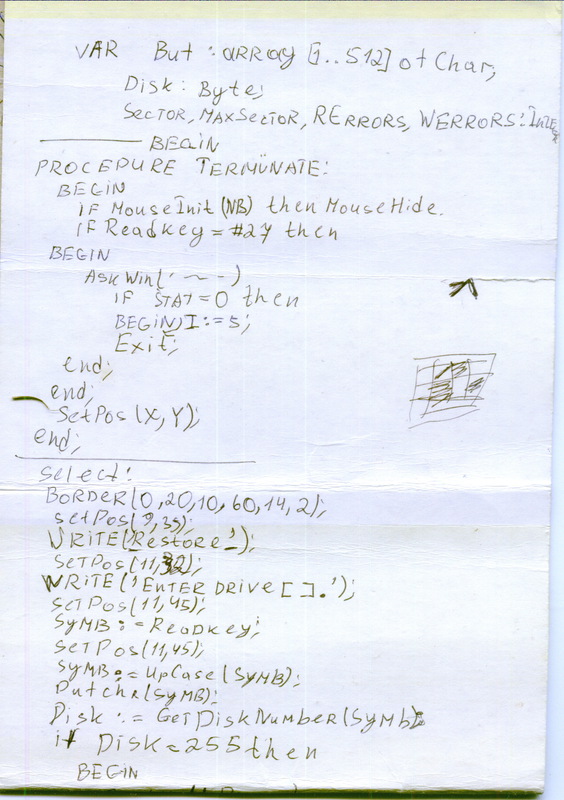 VAR But : array [1..512] of Char;
Disk: Byte;
SECTOR, MAXSECTOR, RERRORS, WERRORS:
BEGIN
PROCEDURE TERMINATE:
BEGIN
IF MouseInit (NB) then MouseHide.
IF ReadKey = #27 then
BEGIN
ASK Win(' ~ -)
IF STAT=0 then
BEGIN I:=5;
Exit;
end;
end;
SetPos (X, Y);
end;
Select:
BORDER(0,20,10,60,14,2);
SetPos(9,35);
WRITE('Restore');
SETPOS(11,32);
WRITE('ENTER DRIVE [ ].');
SETPOS(11,45);
SYMB := ReadKey;
SETPOS(11,45);
SYMB := UpCase (SYMB);
PutChr(SYMB);
Disk := GetDiskNumber(Symb);
if Disk = 255 then
BEGIN